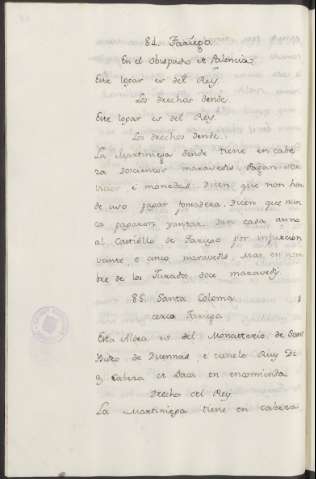 84. Tariego
En el obispado de Palencia
Este logar es del Rey
Los derechos dende
Este logar es del Rey
Los derechos dende.
La Martiniega dende tiene en cabe
za doscientos maravedis. Pagan
e monedas. Dicen que non han
de uso pagar fonsadera. Dicen que nun
ca pagaron yantar. Dan cada anno
al Castiello de Tariego por infurcion
veinte e cinco maravedis, mas en nom
bre de los Jurados doce maravedis
85. Santa Coloma
cerca Tariego
Esta Aldea es del Monasterio de Sant
Isidro de Duennas e tienelo Ruy Di
az Cabeza de Baca en encomienda
Derecho del Rey
La Martiniega tiene en cabeza